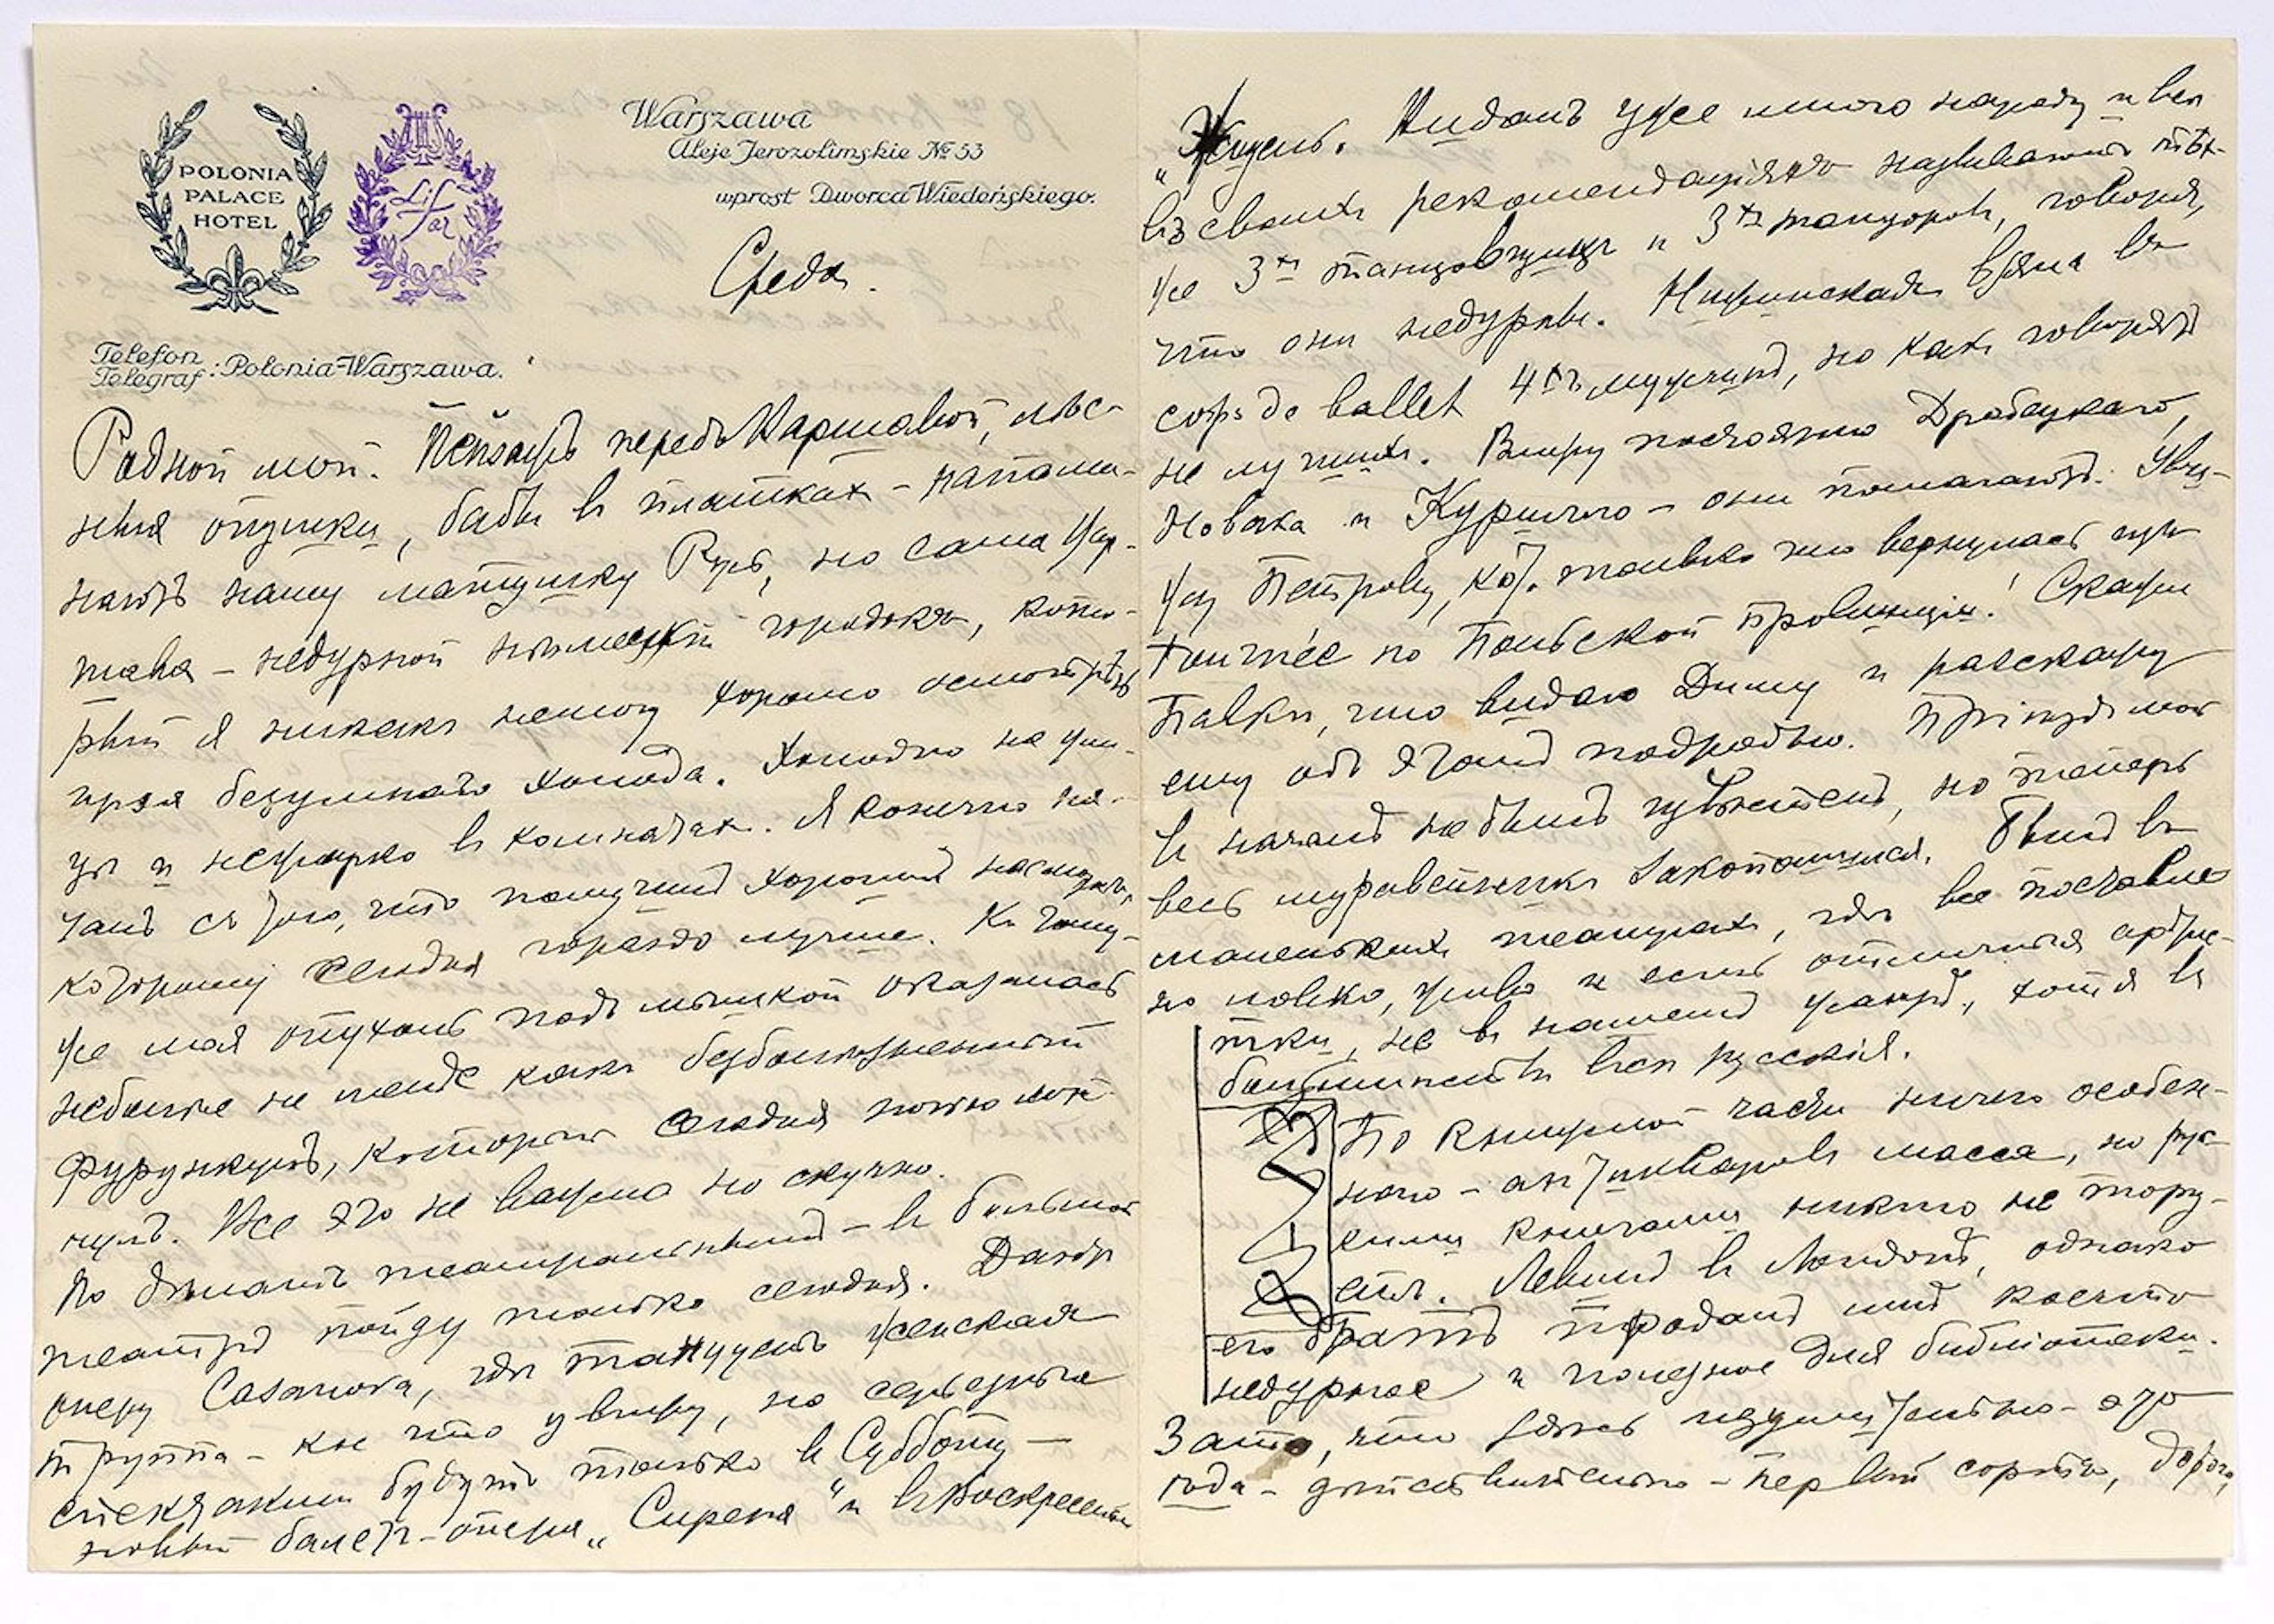 POLONIA
PALACE
HOTEL
Lifar
Warszawa
Aleje Jerozolimskie № 53
wprost Dworca Wiedeńskiego.
Среда.
Telefon
Telegraf : Polonia-Warszawa.
Родной мой. Пейзажъ передъ Варшавой, лѣс-
ныя опушки, бабы въ платкахъ – напоми-
наютъ нашу матушку Русь, но сама Вар-
шава – недурной нѣмецкій городокъ, кото-
рый я никакъ не могу хорошо осмотрѣть
изъ за безумнаго холода. Холодно на ули-
цѣ и нежарко въ комнатахъ. Я конечно на-
чалъ съ того, что получилъ хорошій насморкъ,
которому сегодня гораздо лучше. Къ тому-
же моя опухоль подъ мышкой оказалась
неболѣе не менѣе какъ безболѣзненный
фурункулъ, который сегодня ночью лоп-
нулъ. Все это не важно но скучно.
По дѣламъ театральнымъ – въ большой
театръ пойду только сегодня. Даютъ
оперу Casanova, гдѣ танцуетъ женская
труппа – кое что увижу, но серьезные
спектакли будутъ только въ Субботу –
новый балетъ-опера „Сирена“ и въ Воскресенье
„Жизель“. Видалъ уже много народу и всѣ
въ своихъ рекомендаціяхъ называютъ тѣхъ-
же 3хъ танцовщицъ и 3хъ танцоровъ, говоря,
что они недурны. Нижинская взяла въ
corps de ballet 4хъ мужчинъ, но какъ говорятъ
не лучшихъ. Вижу постоянно Дробецкаго,
Новака и Курилло – они помогаютъ. Уви-
жу Петрову, кот. только что вернулась изъ
tournée по Польской провинціи! Скажи
Павкѣ, что видаю Диму и разскажу
ему объ этомъ подробно. Пріѣздъ мой
въ началѣ не былъ извѣстенъ, но теперь
весь муравейникъ закопошился. Былъ въ
маленькихъ театрахъ, гдѣ все поставле-
но ловко, живо и есть отличныя артис-
тки, не въ нашемъ жанрѣ, хотя въ
большинствѣ всѣ русскія.
По книжной части ничего особен-
наго – антикваровъ масса, но рус-
скими книгами никто не тору-
етъ. Левинъ въ Лондонѣ, однако
его братъ продалъ мнѣ коечто
недурное и полезное для библіотеки.
Зато, что здѣсь изумительно – это
ѣда – дѣйствительно – первый сортъ, дорого,